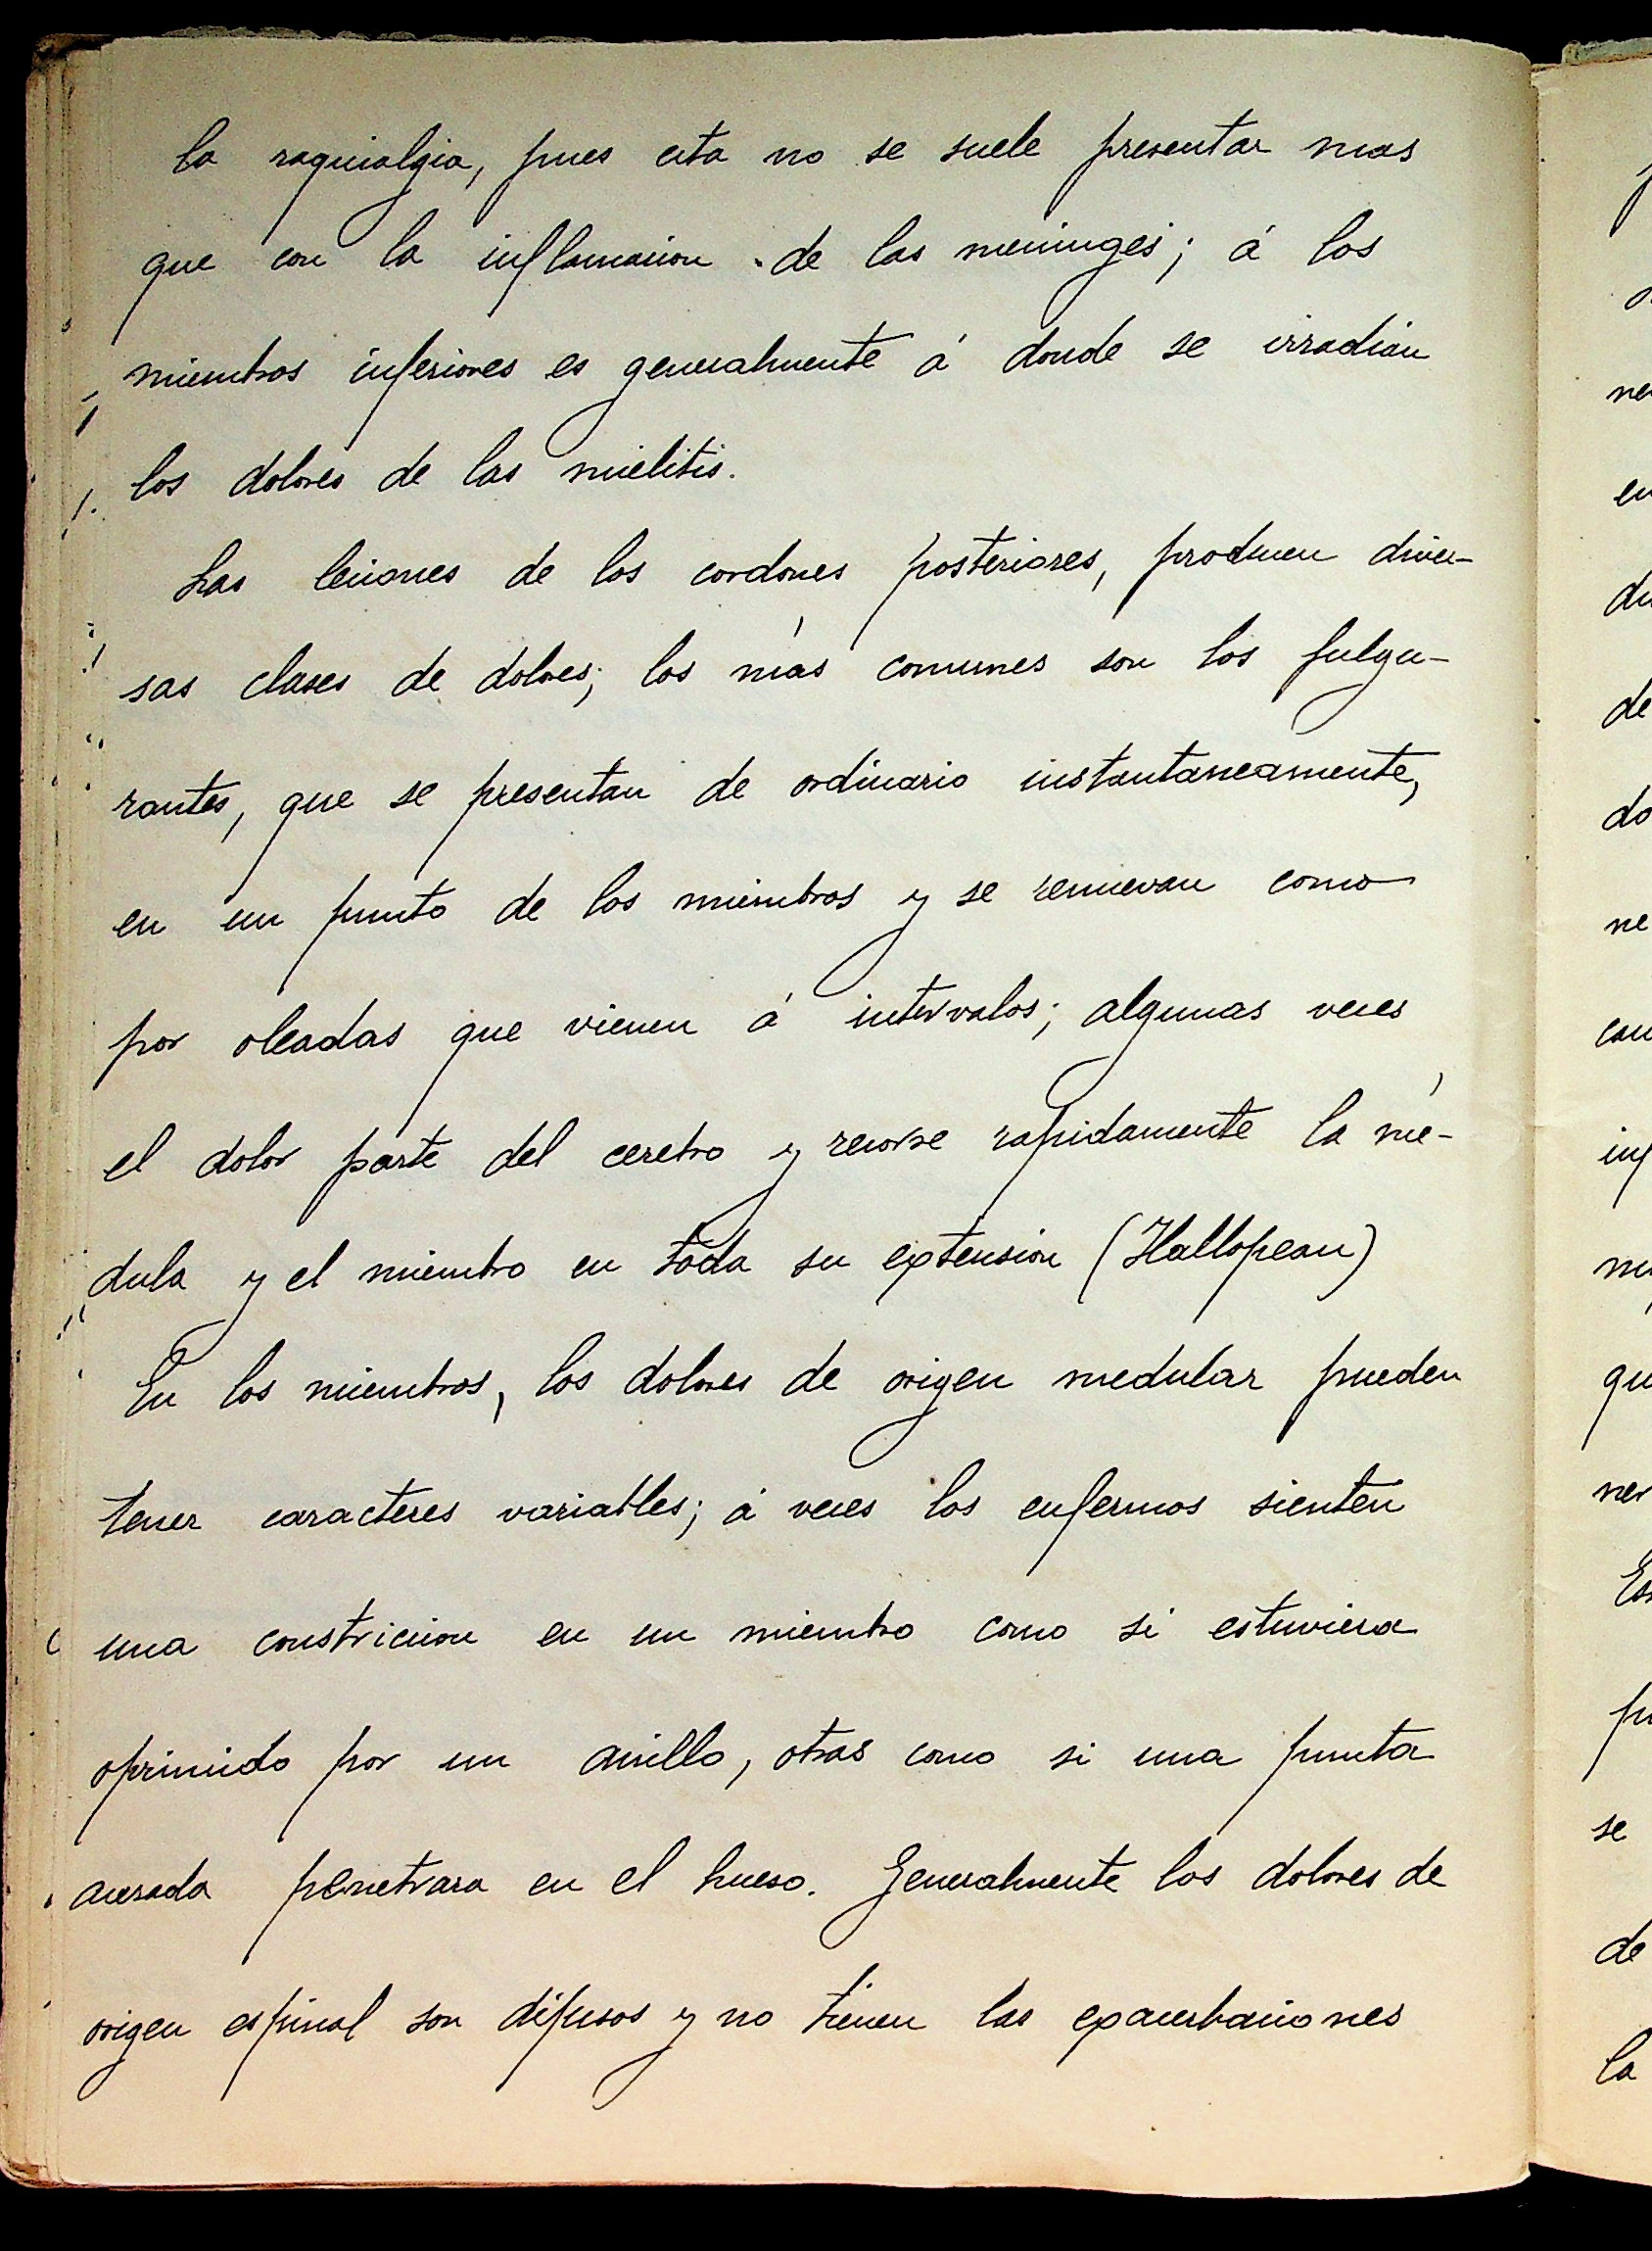 la raquialgia, pues esta no se suele presentar mas
que con la inflamacion de las meninges; á los
miembros inferiores es generalmente á donde se irradian
los dolores de las mielitis.
Las lesiones de los cordones posteriores, producen diver-
sas clases de dolores; los más comunes son los fulgu-
rantes, que se presentan de ordinario instantaneamente,
en un punto de los miembros y se renuevan como
por oleadas que vienen á intervalos; algunas veces
el dolor parte del cerebro y recorre rapidamente la mé-
dula y el miembro en toda su extension (Hallopeau)
En los miembros, los dolores de origen medular pueden
tener caracteres variables; á veces los enfermos sienten
una constriccion en un miembro como si estuviera
oprimido por un anillo, otras como si una punta
acerada penetrara en el hueso. Generalmente los dolores de
origen espinal son difusos y no tienen las exacerbaciones